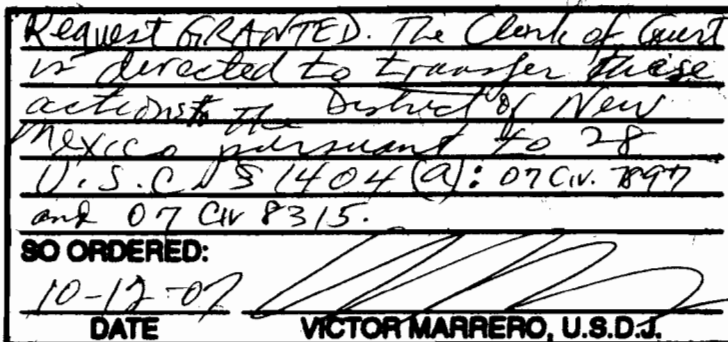 Request GRANTED. The Clerk of Court
is directed to transfer these
actions to the District of New
Mexico pursuant to 28
U.S.C. § 1404(a): 07 Civ. 7897
and 07 Civ 8315.
SO ORDERED:
10-12-07
DATE VICTOR MARRERO, U.S.D.J.